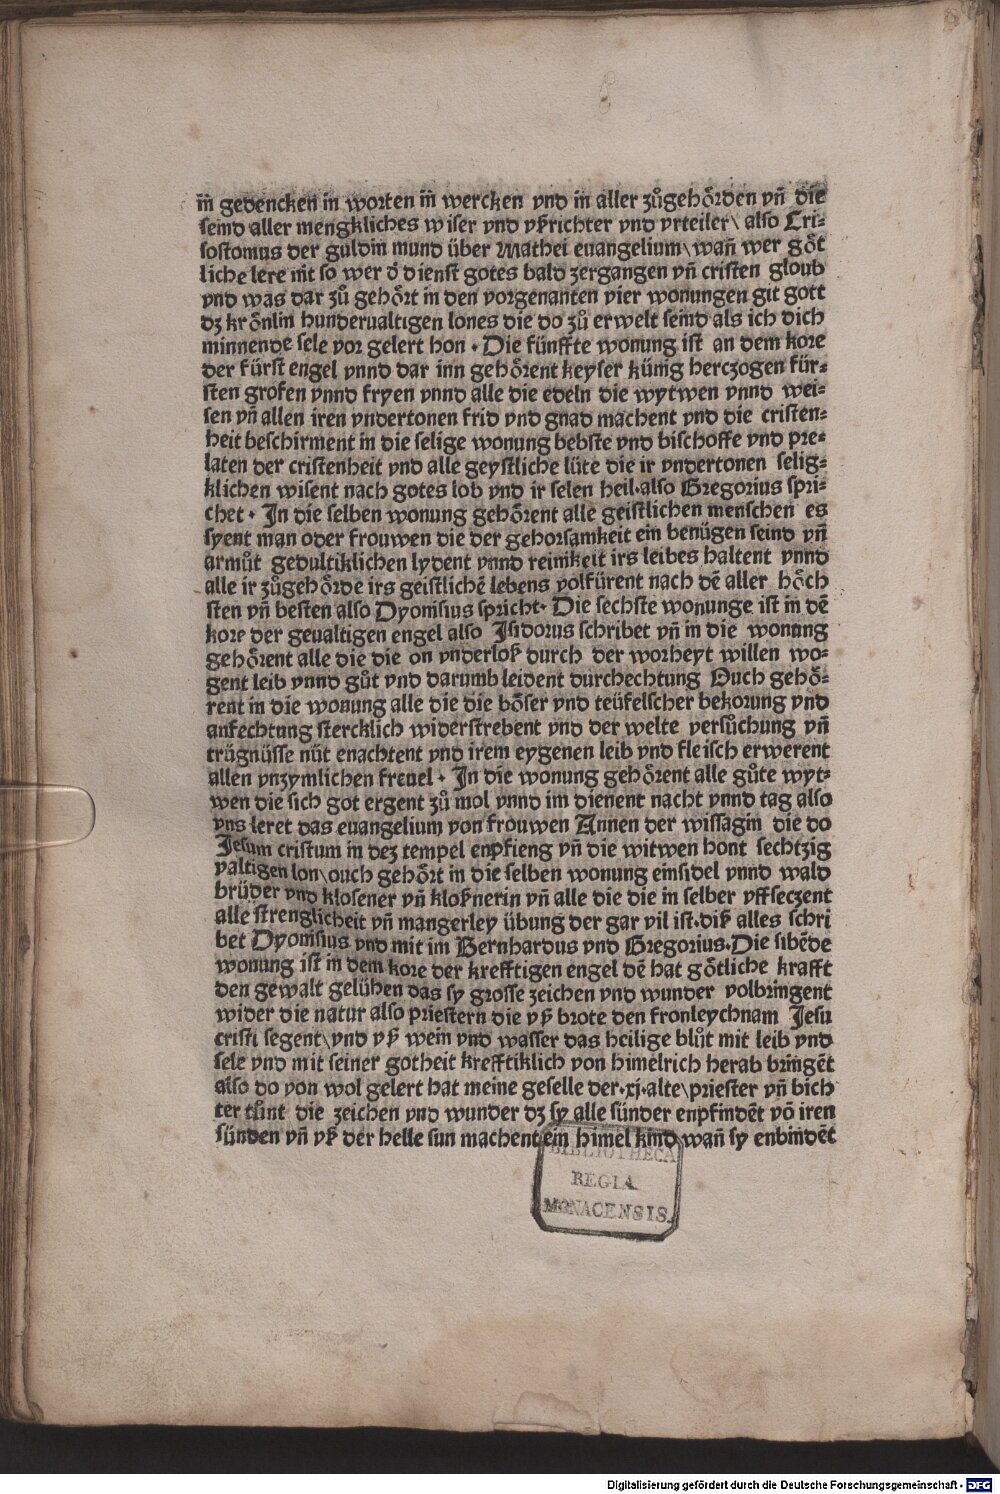 in̄ gedencken in worten in̄ wercken vnd in aller zůgehörden vn̄ die
seind aller mengkliches wiser vnd vßrichter vnd vrteiler\ also Cri⸗
sostomus der guldin mund über Mathei euangelium\ wan̄ wer göt
liche lere nit so wer d̄ dienst gotes bald zergangen vn̄ cristen gloub
vnd was dar zů gehört in den vorgenanten vier wonungen git gott
dz krönlin hunderualtigen lones die do zů erwelt seind als ich dich
minnende sele vor gelert hon · Die fünffte wonung ist an dem kore
der fürst engel vnnd dar inn gehörent keyser künig herczogen für⸗
sten grofen vnnd fryen vnnd alle die edeln die wytwen vnnd wei⸗
sen vn̄ allen iren vndertonen frid vnd gnad machent vnd die cristen⸗
heit beschirment in die selige wonung bebste vnd bischoffe vnd pre⸗
laten der cristenheit vnd alle geystliche lüte die ir vndertonen selig⸗
klichen wisent nach gotes lob vnd ir selen heil·also Gregorius spri⸗
chet · In die selben wonung gehörent alle geistlichen menschen es
syent man oder frouwen die der gehorsamkeit ein benügen seind vn̄
armůt gedultiklichen lydent vnnd reinikeit irs leibes haltent vnnd
alle ir zůgehörde irs geistlichē lebens volfürent nach dē aller höch
sten vn̄ besten also Dyonisius spricht· Die sechste wonunge ist in dē
kore der geualtigen engel also Isidorus schribet vn̄ in die wonung
gehörent alle die die on vnderloß durch der worheyt willen wo⸗
gent leib vnnd gůt vnd darumb leident durchechtung Ouch gehö⸗
rent in die wonung alle die die böser vnd teüfelscher bekorung vnd
anfechtung stercklich widerstrebent vnd der welte versůchung vn̄
trügnüsse nüt enachtent vnd irem eygenen leib vnd fleisch erwerent
allen vnzymlichen freuel · In die wonung gehörent alle gůte wyt⸗
wen die sich got ergent zů mol vnnd im dienent nacht vnnd tag also
vns leret das euangelium von frouwen Annen der wissagin die do
Jesum cristum in dez tempel enpfieng vn̄ die witwen hont sechtzig
valtigen lon\ ouch gehört in die selben wonung einsidel vnnd wald
brüder vnd klosener vn̄ kloßnerin vn̄ alle die die in selber vffseczent
alle strenglicheit vn̄ mangerley übung der gar vil ist·diß alles schri
bet Dyonisius vnd mit im Bernhardus vnd Gregorius·Die sibēde
wonung ist in dem kore der krefftigen engel dē hat götliche krafft
den gewalt gelühen das sy grosse zeichen vnd wunder volbringent
wider die natur also priestern die vß brote den fronleychnam Jesu
cristi segent\ vnd vß wein vnd wasser das heilige blůt mit leib vnd
sele vnd mit seiner gotheit krefftiklich von himelrich herab bringēt
also do von wol gelert hat meine geselle der·xj·alte\ priester vn̄ bich
ter tůnt die zeichen vnd wunder dz sy alle sünder enpfindēt vō iren
sünden vn̄ vß der helle sun machent ein himel kind wan̄ sy enbindēt
BIBLIOTHECA
REGIA
MONACENSIS.
Digitalisierung gefördert durch die Deutsche Forschungsgemeinschaft - DFG